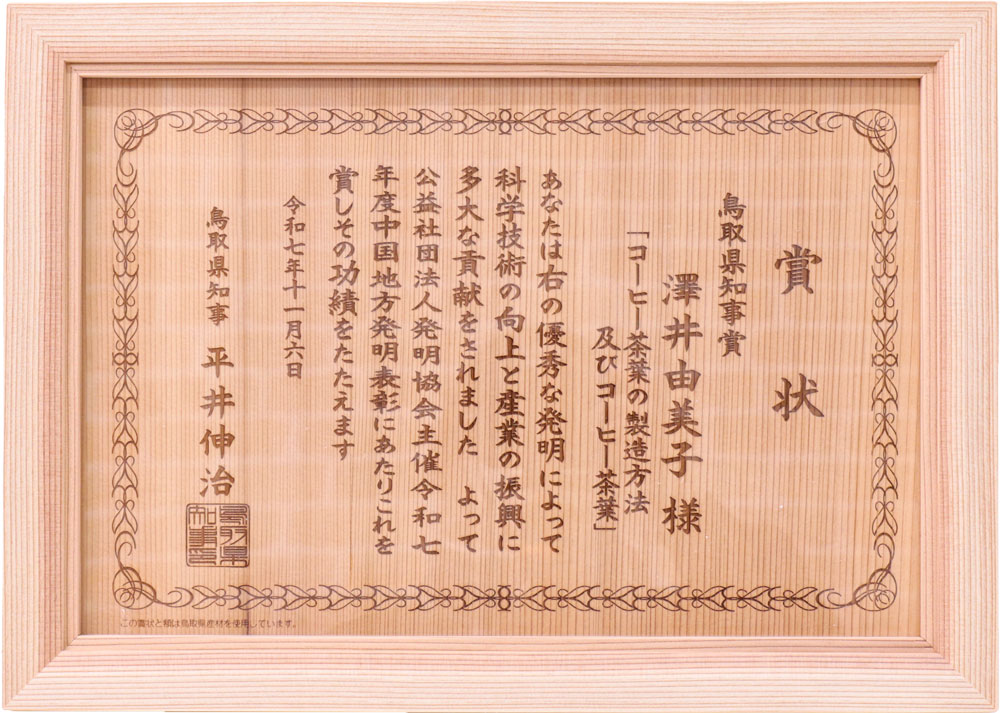 賞状
鳥取県知事賞
澤井由美子様
「コーヒー茶葉の製造方法
及びコーヒー茶葉」
あなたは右の優秀な発明によって
科学技術の向上と産業の振興に
多大な貢献をされました　よって
公益社団法人発明協会主催令和七
年度中国地方発明表彰にあたりこれを
賞しその功績をたたえます
令和七年十一月六日
鳥取県知事　平井伸治
この賞状と額は鳥取県産材を使用しています。